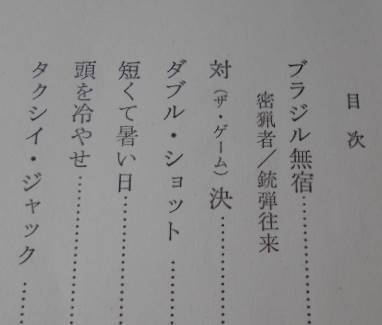 目次
ブラジル無宿……………
密猟者／銃弾往来
対（ザ・ゲーム）決……………
ダブル・ショット……………
短くて暑い日……………
頭を冷やせ……………
タクシイ・ジャック……